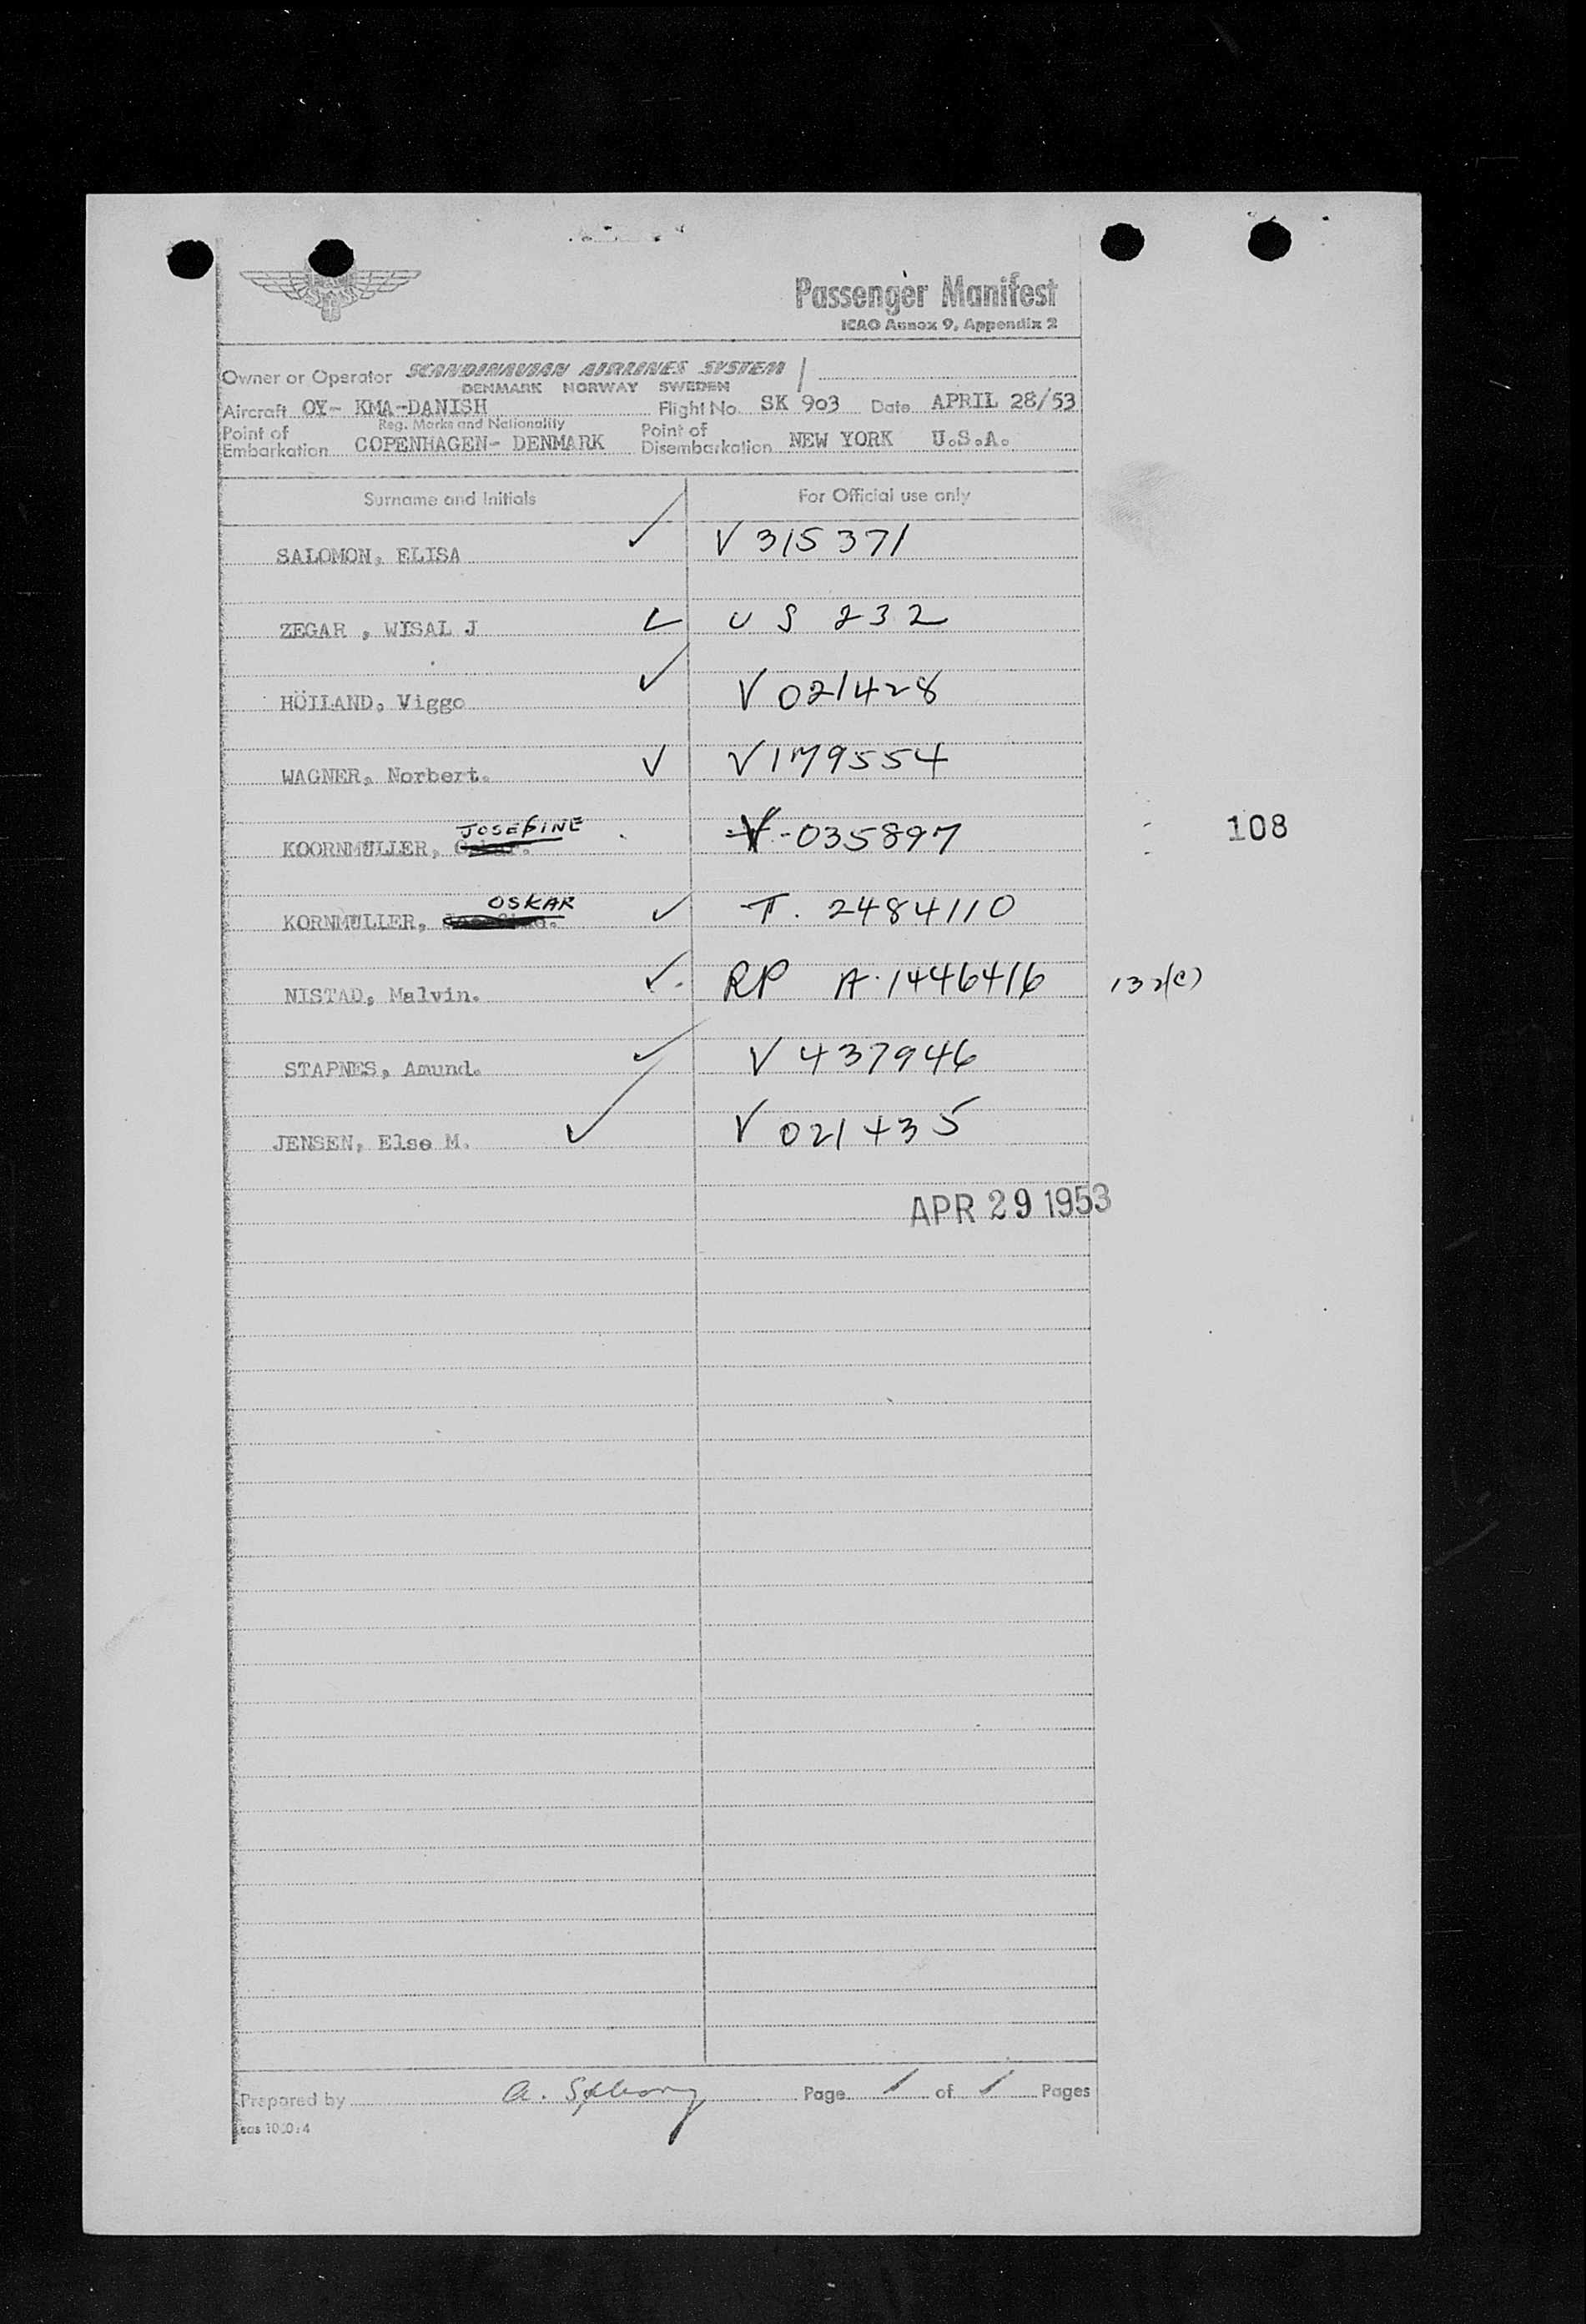 Passenger Manifest
ICAO Annex 9, Appendix 2
Owner or Operator SCANDINAVIAN AIRLINES SYSTEM
DENMARK NORWAY SWEDEN
Aircraft OY- KMA-DANISH Flight No. SK 903 Date APRIL 28/53
Reg. Marks and Nationality
Point of Embarkation COPENHAGEN- DENMARK Point of Disembarkation NEW YORK U.S.A.
Surname and Initials For Official use only
SALOMON, ELISA V 315371
ZEGAR , WISAL J US 232
HÖILAND, Viggo V 021428
WAGNER, Norbert. V179554
JOSEFINE
KOORNMULLER, Oskar. V-035897 108
OSKAR
KORNMULLER, T. 2484110
NISTAD, Malvin. RP A.1446416 132(c)
STAPNES, Amund. V 437946
JENSEN, Else M. V 021435
APR 29 1953
Prepared by A. Page 1 of 1 Pages